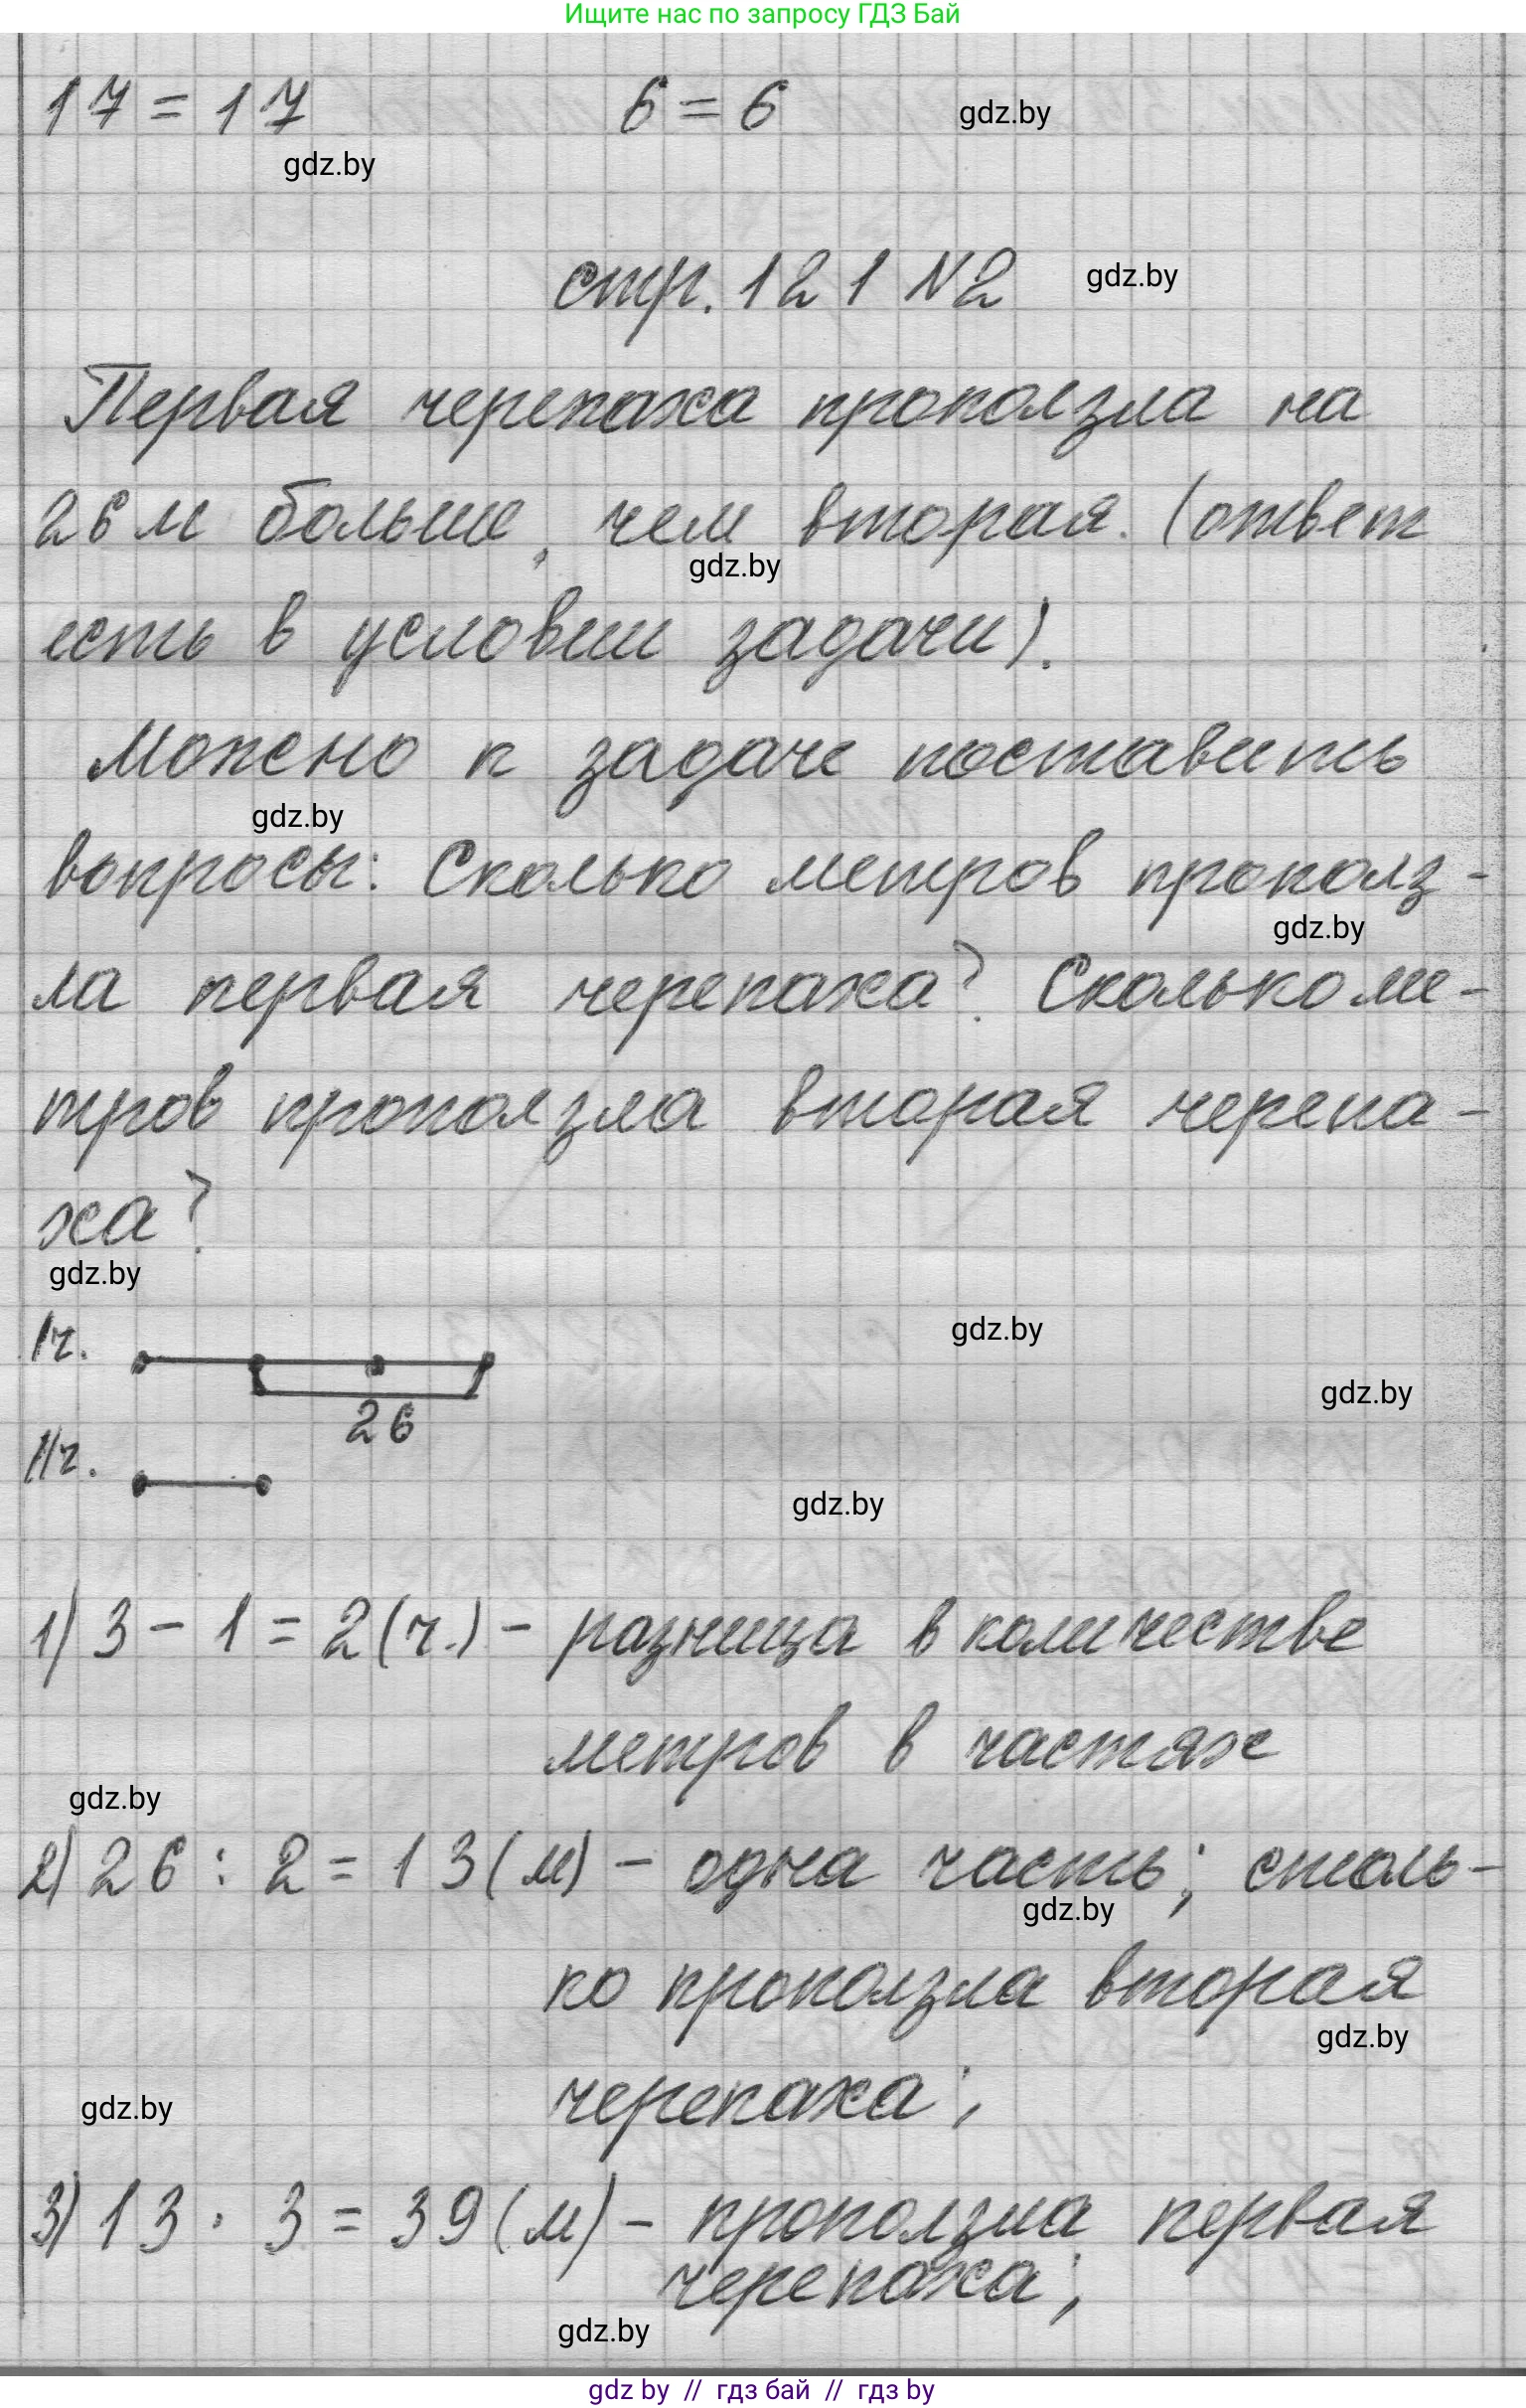 Ищите нас по запросу ГДЗ Бай
17 = 17 6 = 6 gdz.by
gdz.by
стр. 121 №2 gdz.by
Первая черепаха проползла на
26 м больше, чем вторая. (ответ
gdz.by
есть в условии задачи).
Можно к задаче поставить
gdz.by
вопросы: Сколько метров прополз-
gdz.by
ла первая черепаха? Сколько ме-
тров проползла вторая черепа-
ха?
gdz.by
Iч. gdz.by
gdz.by
26
IIч.
gdz.by
1) 3 - 1 = 2 (ч.) - разница в количестве
метров в частях
gdz.by
2) 26 : 2 = 13 (м) - одна часть; столь-
gdz.by
ко проползла вторая
gdz.by
черепаха;
gdz.by
3) 13 · 3 = 39 (м) - проползла первая
черепаха;
gdz.by
gdz by // гдз бай // гдз by